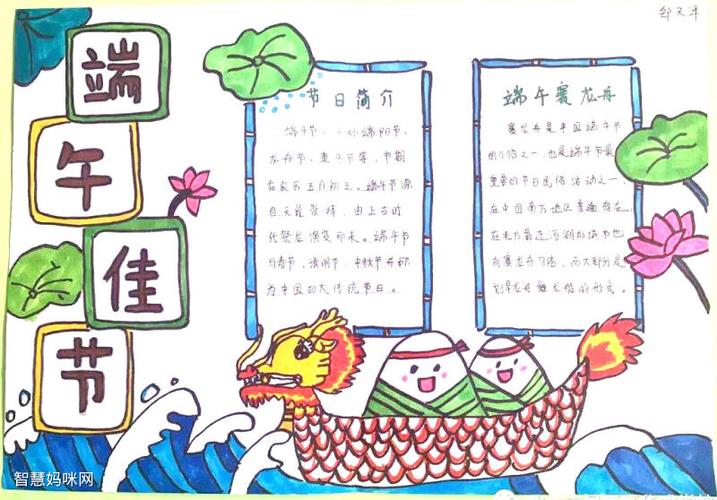 郑天泽
端
午
佳
节
节日简介
端午节,
龙舟节、重午节等,节期
在农历五月初五。端午节源
自天象崇拜,由上古时
代祭龙演变而来。端午节
与春节、清明节、中秋节并称
为中国四大传统节日。
端午赛龙舟
赛龙舟是中国端午节
的习俗之一,也是端午节最
重要的节日民俗活动之一,
在中国南方地区普遍存在,
在北方靠近河湖的城市也
有赛龙舟习俗,而大部分是
划旱龙舟舞龙船的形式。
智慧妈咪网